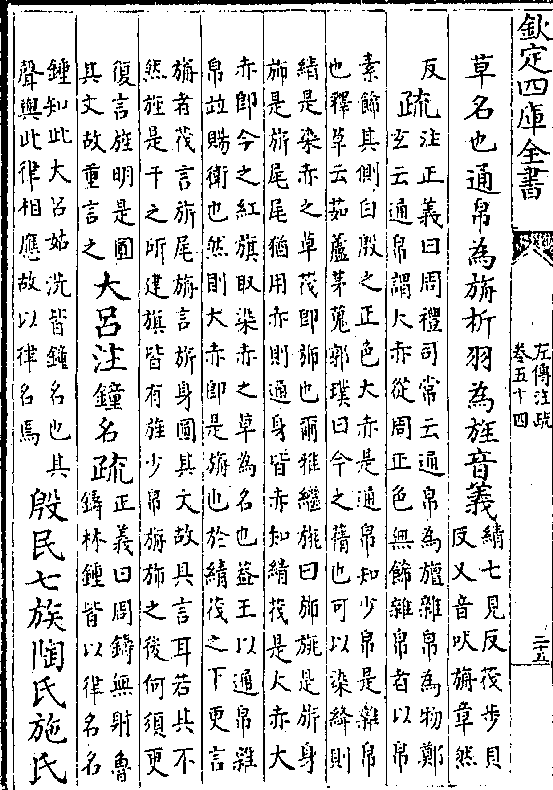 欽定四庫全書
左傳注疏
卷五十四
二十五
草名也通帛為旃析羽為旌音義
綪七見反茷步貝
反又音吠旃章然
反
疏
注正義曰周禮司常云通帛為旜雜帛為物鄭
玄云通帛謂大赤從周正色無飾雜帛者以帛
素飾其側白殷之正色大赤是通帛知少帛是雜帛
也釋草云茹藘茅蒐郭璞曰今之蒨也可以染絳則
綪是染赤之草茷即旆也爾雅繼旐曰旆旐是旂身
旆是旂尾尾猶用赤則通身皆赤知綪茷是大赤大
赤即今之紅旗取染赤之草為名也蓋王以通帛雜
帛並賜衛也然則大赤即是旃也於綪茷之下更言
旃者茷言旂尾旃言旂身圖其文故具言耳若其不
然旌是干之所建旗皆有旌少帛旃旆之後何須更
復言旌明是圖
其文故重言之
大呂注鐘名疏
正義曰周鑄無射魯
鑄林鍾皆以律名名
鍾知此大呂姑洗皆鐘名也其
聲與此律相應故以律名焉
殷民七族陶氏施氏